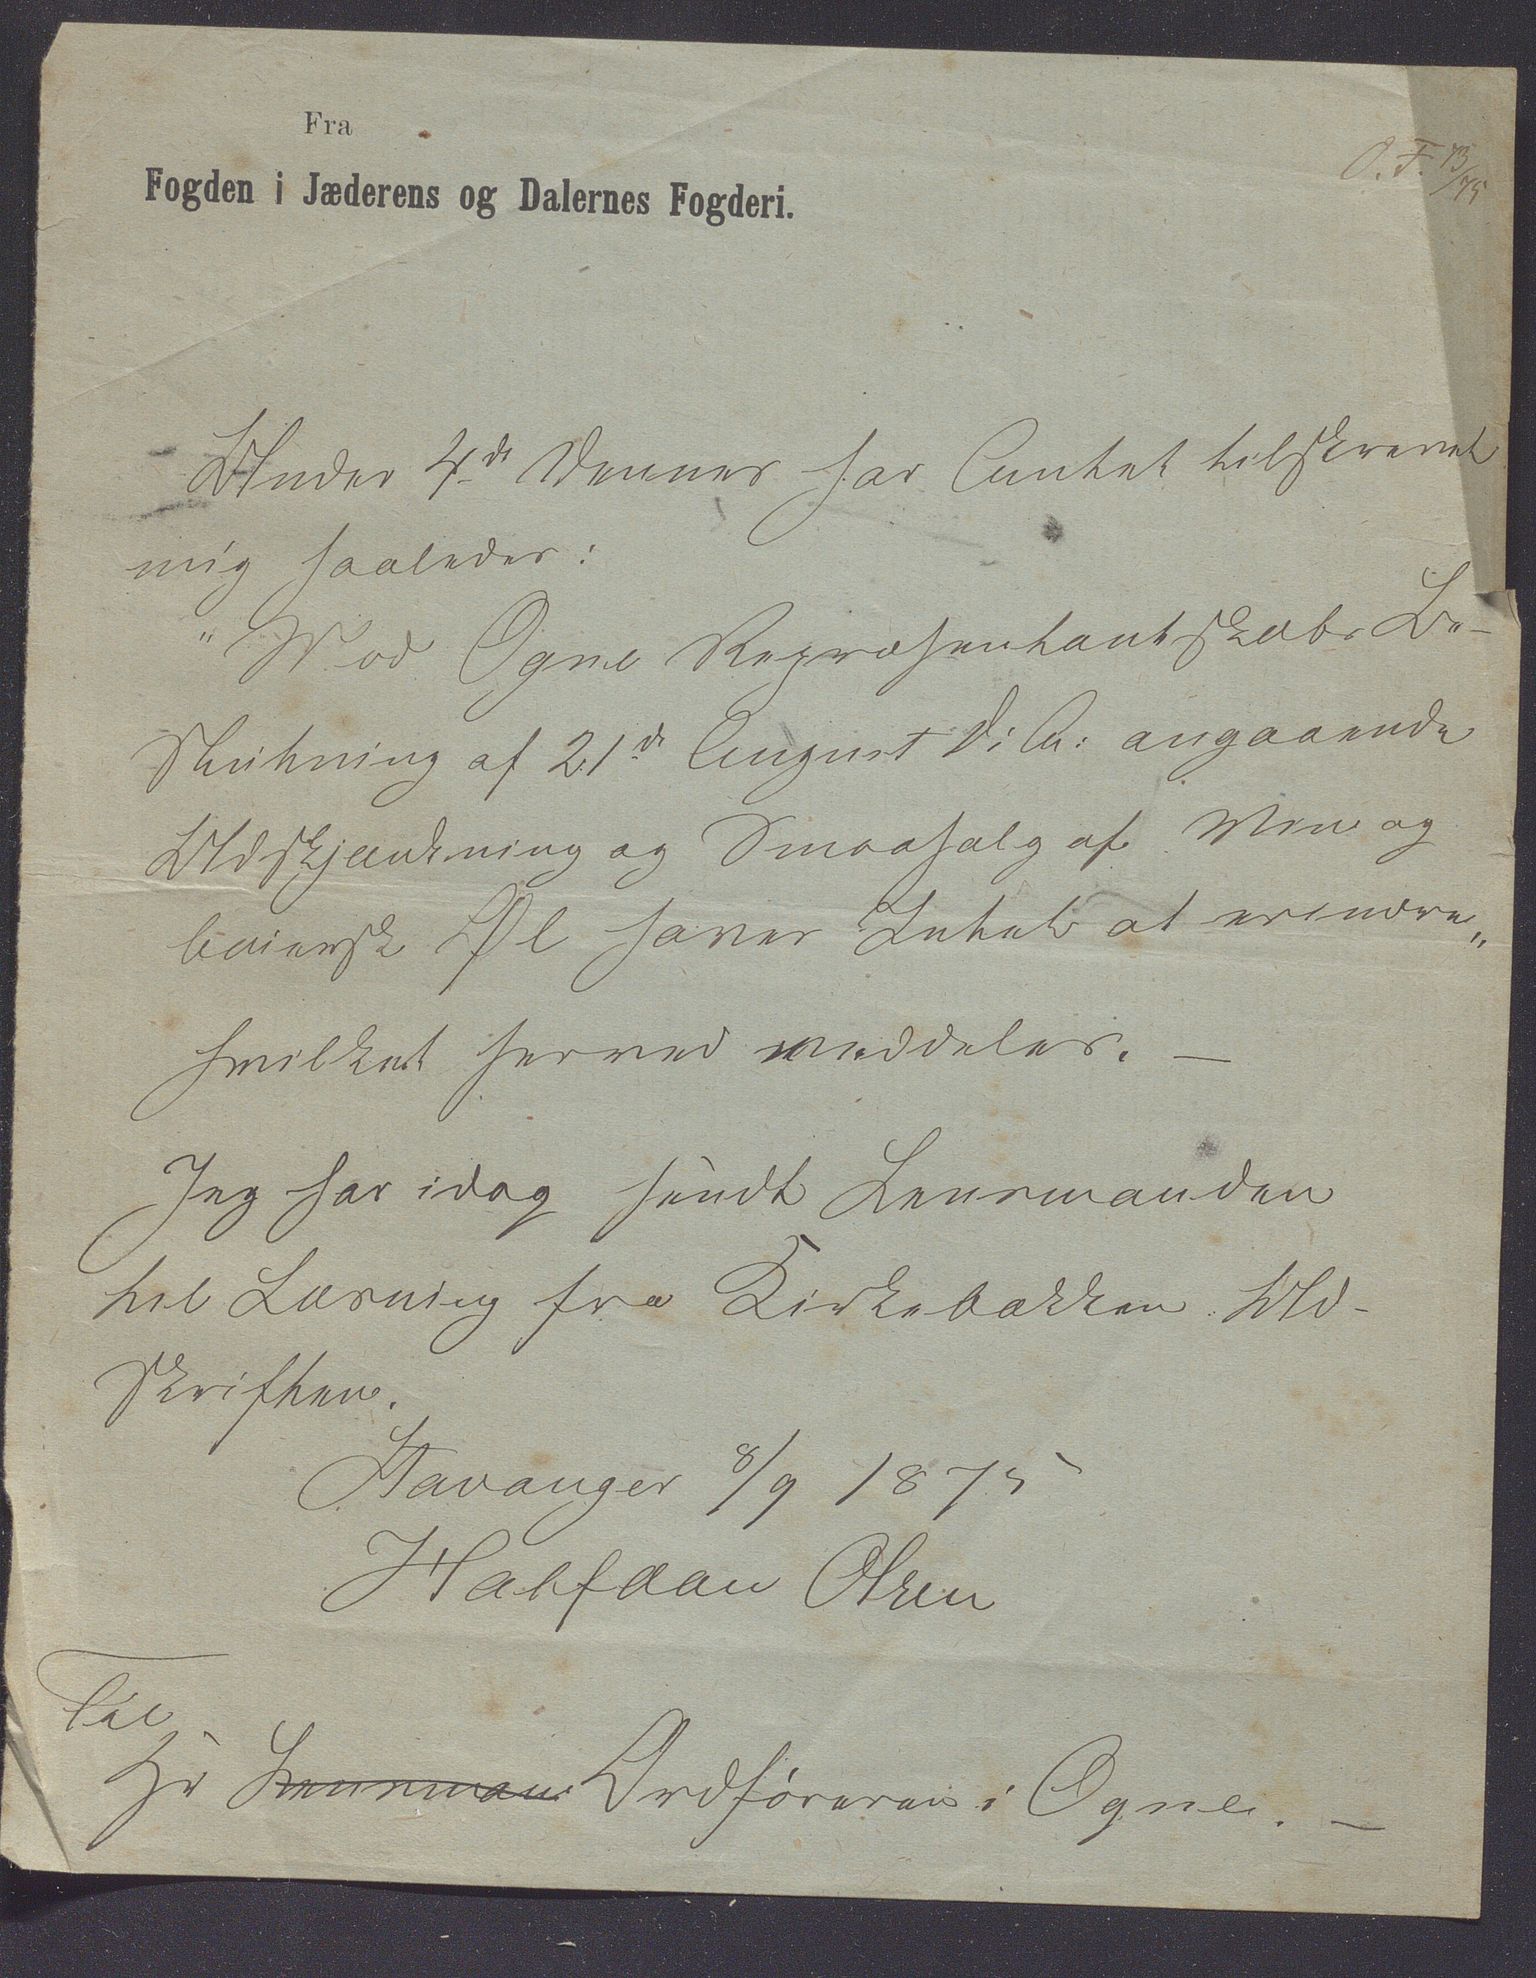 Fra
Fogden i Jæderens og Dalernes Fogderi.
O. F. 73/75
Under 4de dennes har Amtet tilskrevet
mig saaledes:
"Mod Ogne Repræsentantskabs Be-
slutning af 21de August d: A: angaaende
Udskjænkning og Smaasalg af Vin og
baiersk Øl haves Intet at erindre"
hvilket herved meddeles. —
Jeg har idag sendt Lensmanden
til Læsning fra Kirkebakken Ud-
skriften.
Stavanger 8/9 1875
Halfdan Olsen
Til
Hr Lensman Ordføreren i Ogne. —